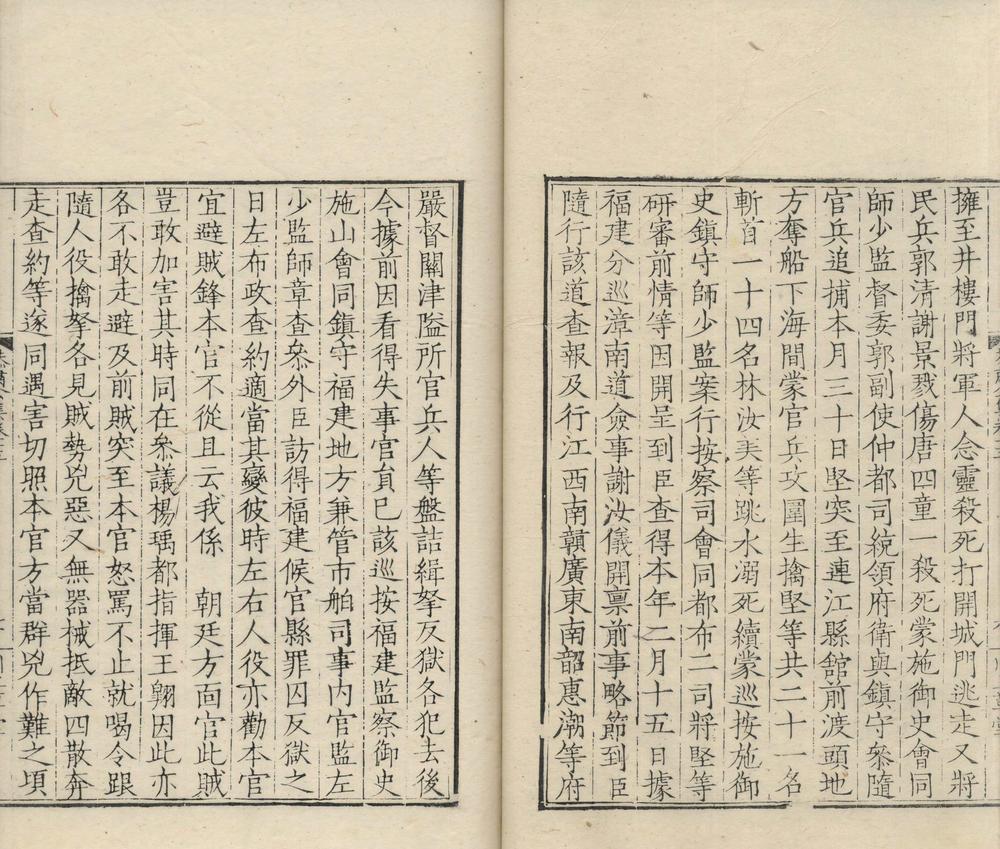 擁至井樓門將軍人念靈殺死打開城門逃走又將
民兵郭清謝景戮傷唐四童一殺死蒙施御史會同
師少監督委郭副使仲都司統領府衛與鎮守叅隨
官兵追捕本月三十日堅突至連江縣館前渡頭地
方奪船下海間蒙官兵攻圍生擒堅等共二十一名
斬首一十四名林汝美等跳水溺死續蒙巡按施御
史鎮守師少監案行按察司會同都布二司將堅等
研審前情等因開呈到臣查得本年二月十五日據
福建分巡漳南道僉事謝汝儀開稟前事略節到臣
隨行該道查報及行江西南贛廣東南韶惠潮等府
嚴督關津隘所官兵人等盤詰緝拏反獄各犯去後
今據前因看得失事官員已該巡按福建監察御史
施山會同鎮守福建地方兼管市舶司事內官監左
少監師章查叅外臣訪得福建候官縣罪囚反獄之
日左布政查約適當其變彼時左右人役亦勸本官
宜避賊鋒本官不從且云我係　朝廷方面官此賊
豈敢加害其時同在叅議楊瑀都指揮王翺因此亦
各不敢走避及前賊突至本官怒罵不止就喝令跟
隨人役擒拏各見賊勢兇惡又無器械抵敵四散奔
走查約等遂同遇害切照本官方當群兇作難之頃